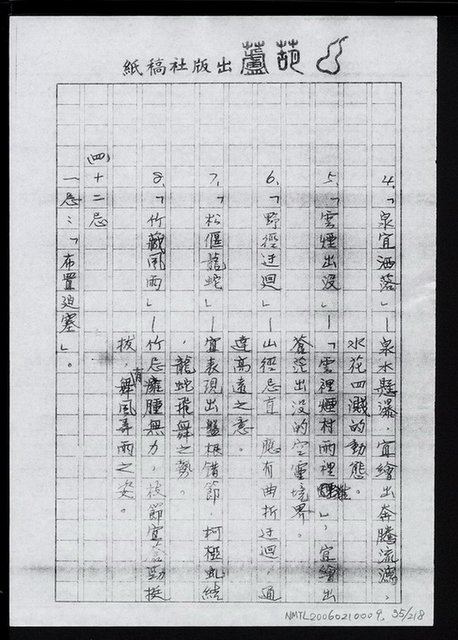 葫蘆出版社稿紙
4.「泉宜洒落」—泉水懸瀑，宜繪出奔騰流瀉，
水花四濺的動態。
5.「雲煙出沒」—「雲裡煙村雨裡灘」，宜繪出
蒼茫出沒的空靈境界。
6.「野徑迂迴」—山徑忌直，應有曲折迂迴，通
達高遠之意。
7.「松偃龍蛇」—宜表現出盤根錯節，柯極虬繞
，龍蛇飛舞之勢。
8.「竹藏風雨」—竹忌癰腫無力，枝節宜言勁挺
拔，有舞風弄雨之姿。
(四)十二忌
一忌：「布置迫塞」。
NMTL20060210009, 35/218